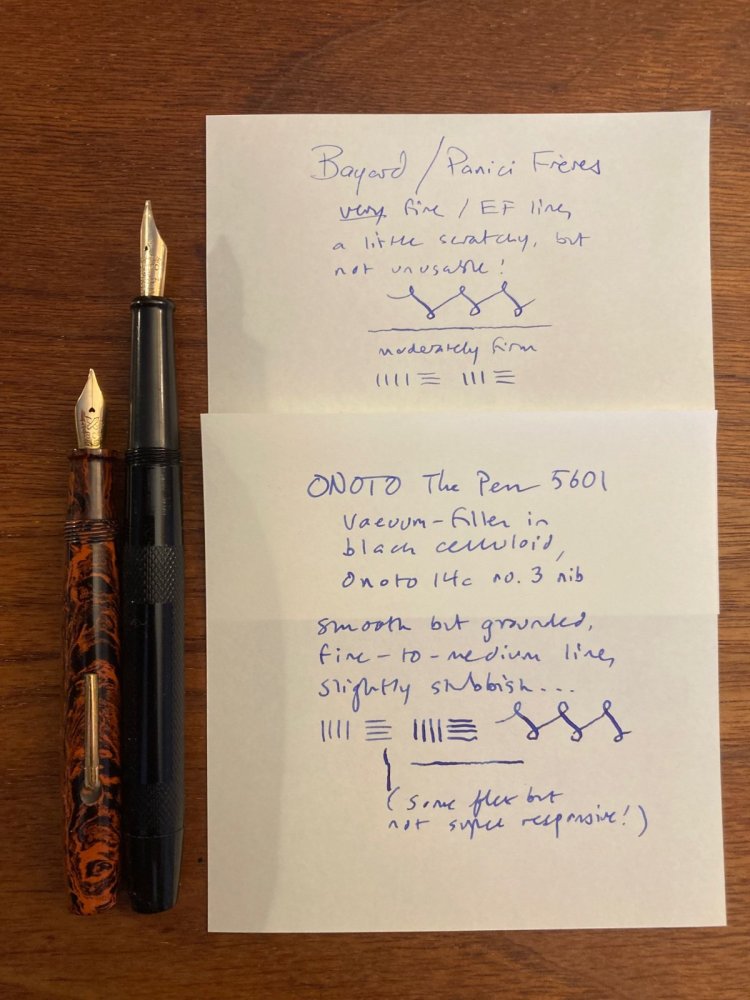 Bayard / Panici Frères
very fine / EF line,
a little scratchy, but
not unusable!
moderately firm
ONOTO The Pen 5601
Vacuum-filler in
black celluloid,
Onoto 14c no. 3 nib
smooth but grounded,
fine-to-medium line,
slightly stubbish...
(some flex but
not super responsive!)